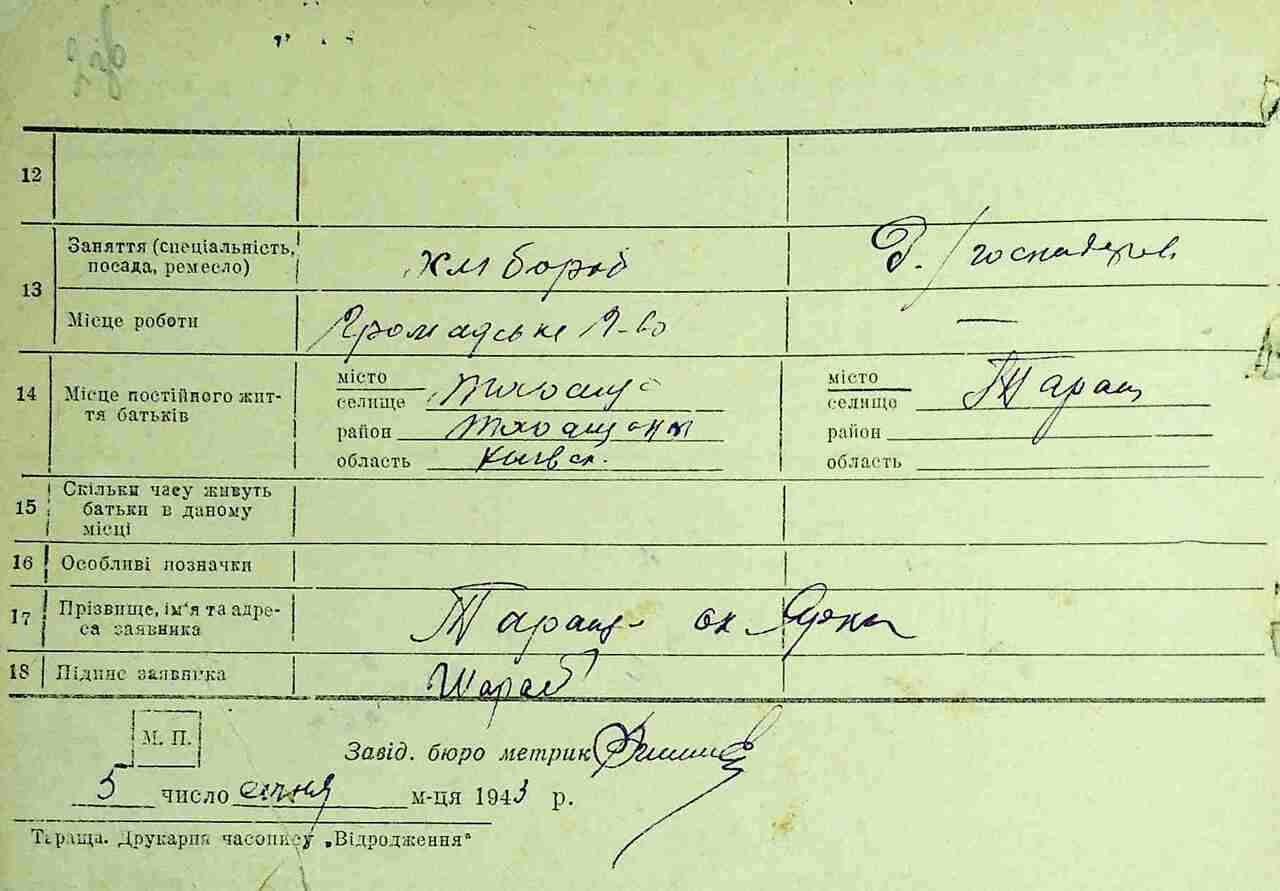 12
13 Заняття (спеціальність, посада, ремесло) хлібороб Д./господарев
Місце роботи Громадське
14 Місце постійного життя батьків
місто Тараща місто Таращ
селище селище
район район
область Київськ. область
15 Скільки часу живуть батьки в даному місці
16 Особливі позначки
17 Прізвище, ім'я та адреса заявника Тараща
18 Підпис заявника
М. П. Завід. бюро метрик
5 число січня м-ця 1943 р.
Тараща. Друкарня часопису „Відродження"